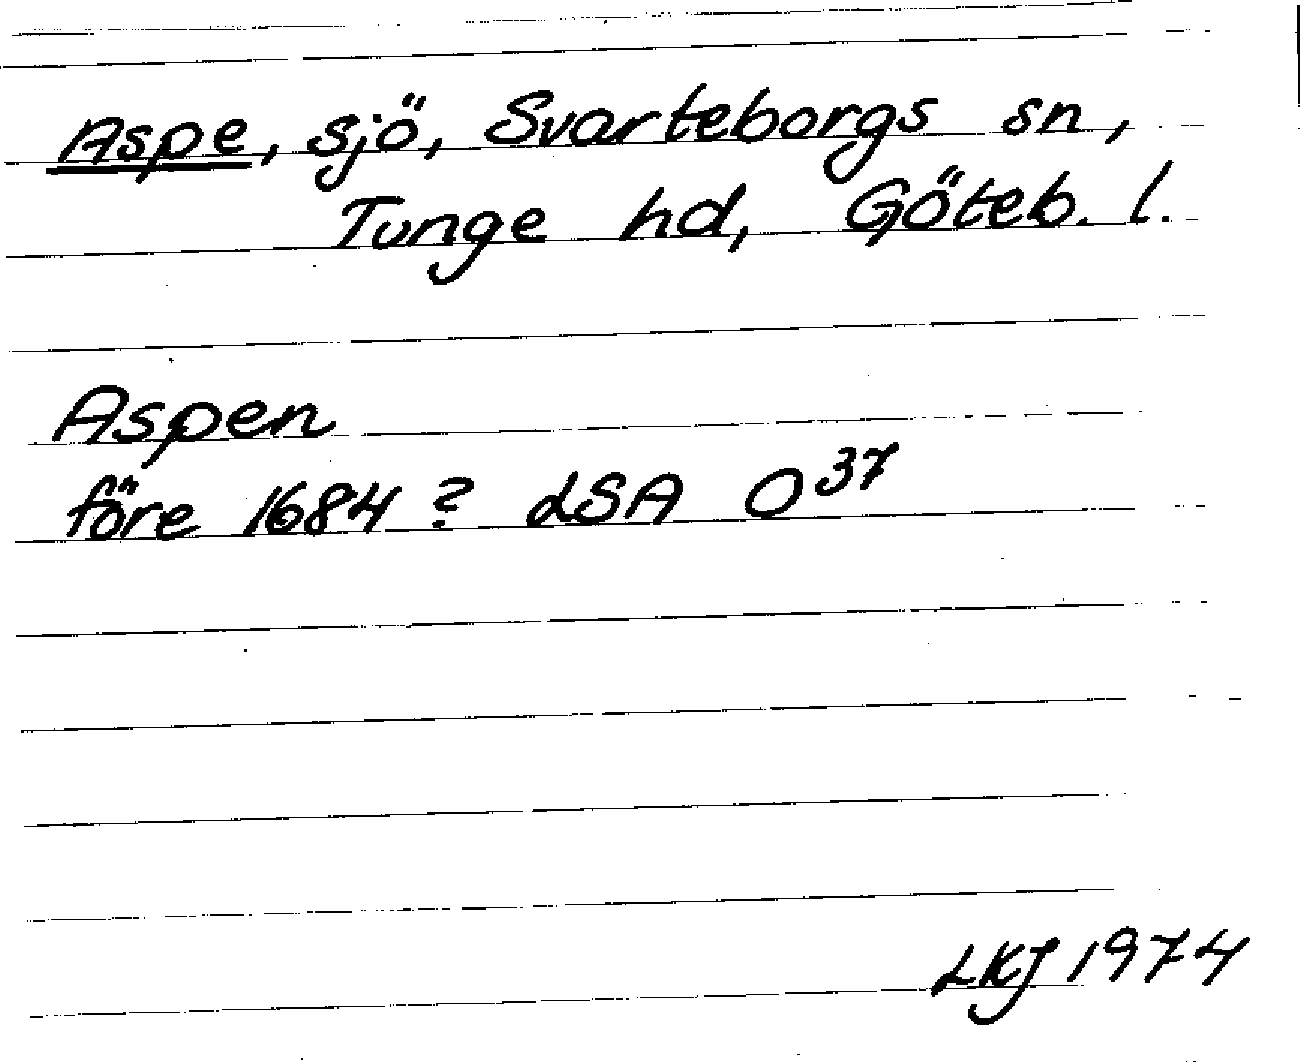 Aspe, sjö, Svarteborgs sn,
Tunge hd, Göteb. l.
Aspen
före 1684? LSA O37
LKJ 1974